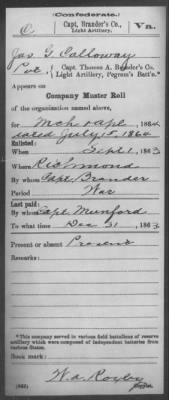 (Confederate.)
C. Capt. Brander's Co., Va.
Light Artillery.
Jas G. Calloway
Pvt., Capt. Thomas A. Brander's Co.
Light Artillery, Pegram's Batt'n.*
Appears on
Company Muster Roll
of the organization named above,
for Mch & Apl, 1864
dated July 15, 1864
Enlisted:
When Sept 1, 1863
Where Richmond
By whom Capt. Brander
Period War
Last paid:
By whom Capt Munford
To what time Dec 31, 1863
Present or absent Present
Remarks:
*This company served in various field battalions of reserve
artillery which were composed of independent batteries from
various States.
Book mark:
(642)